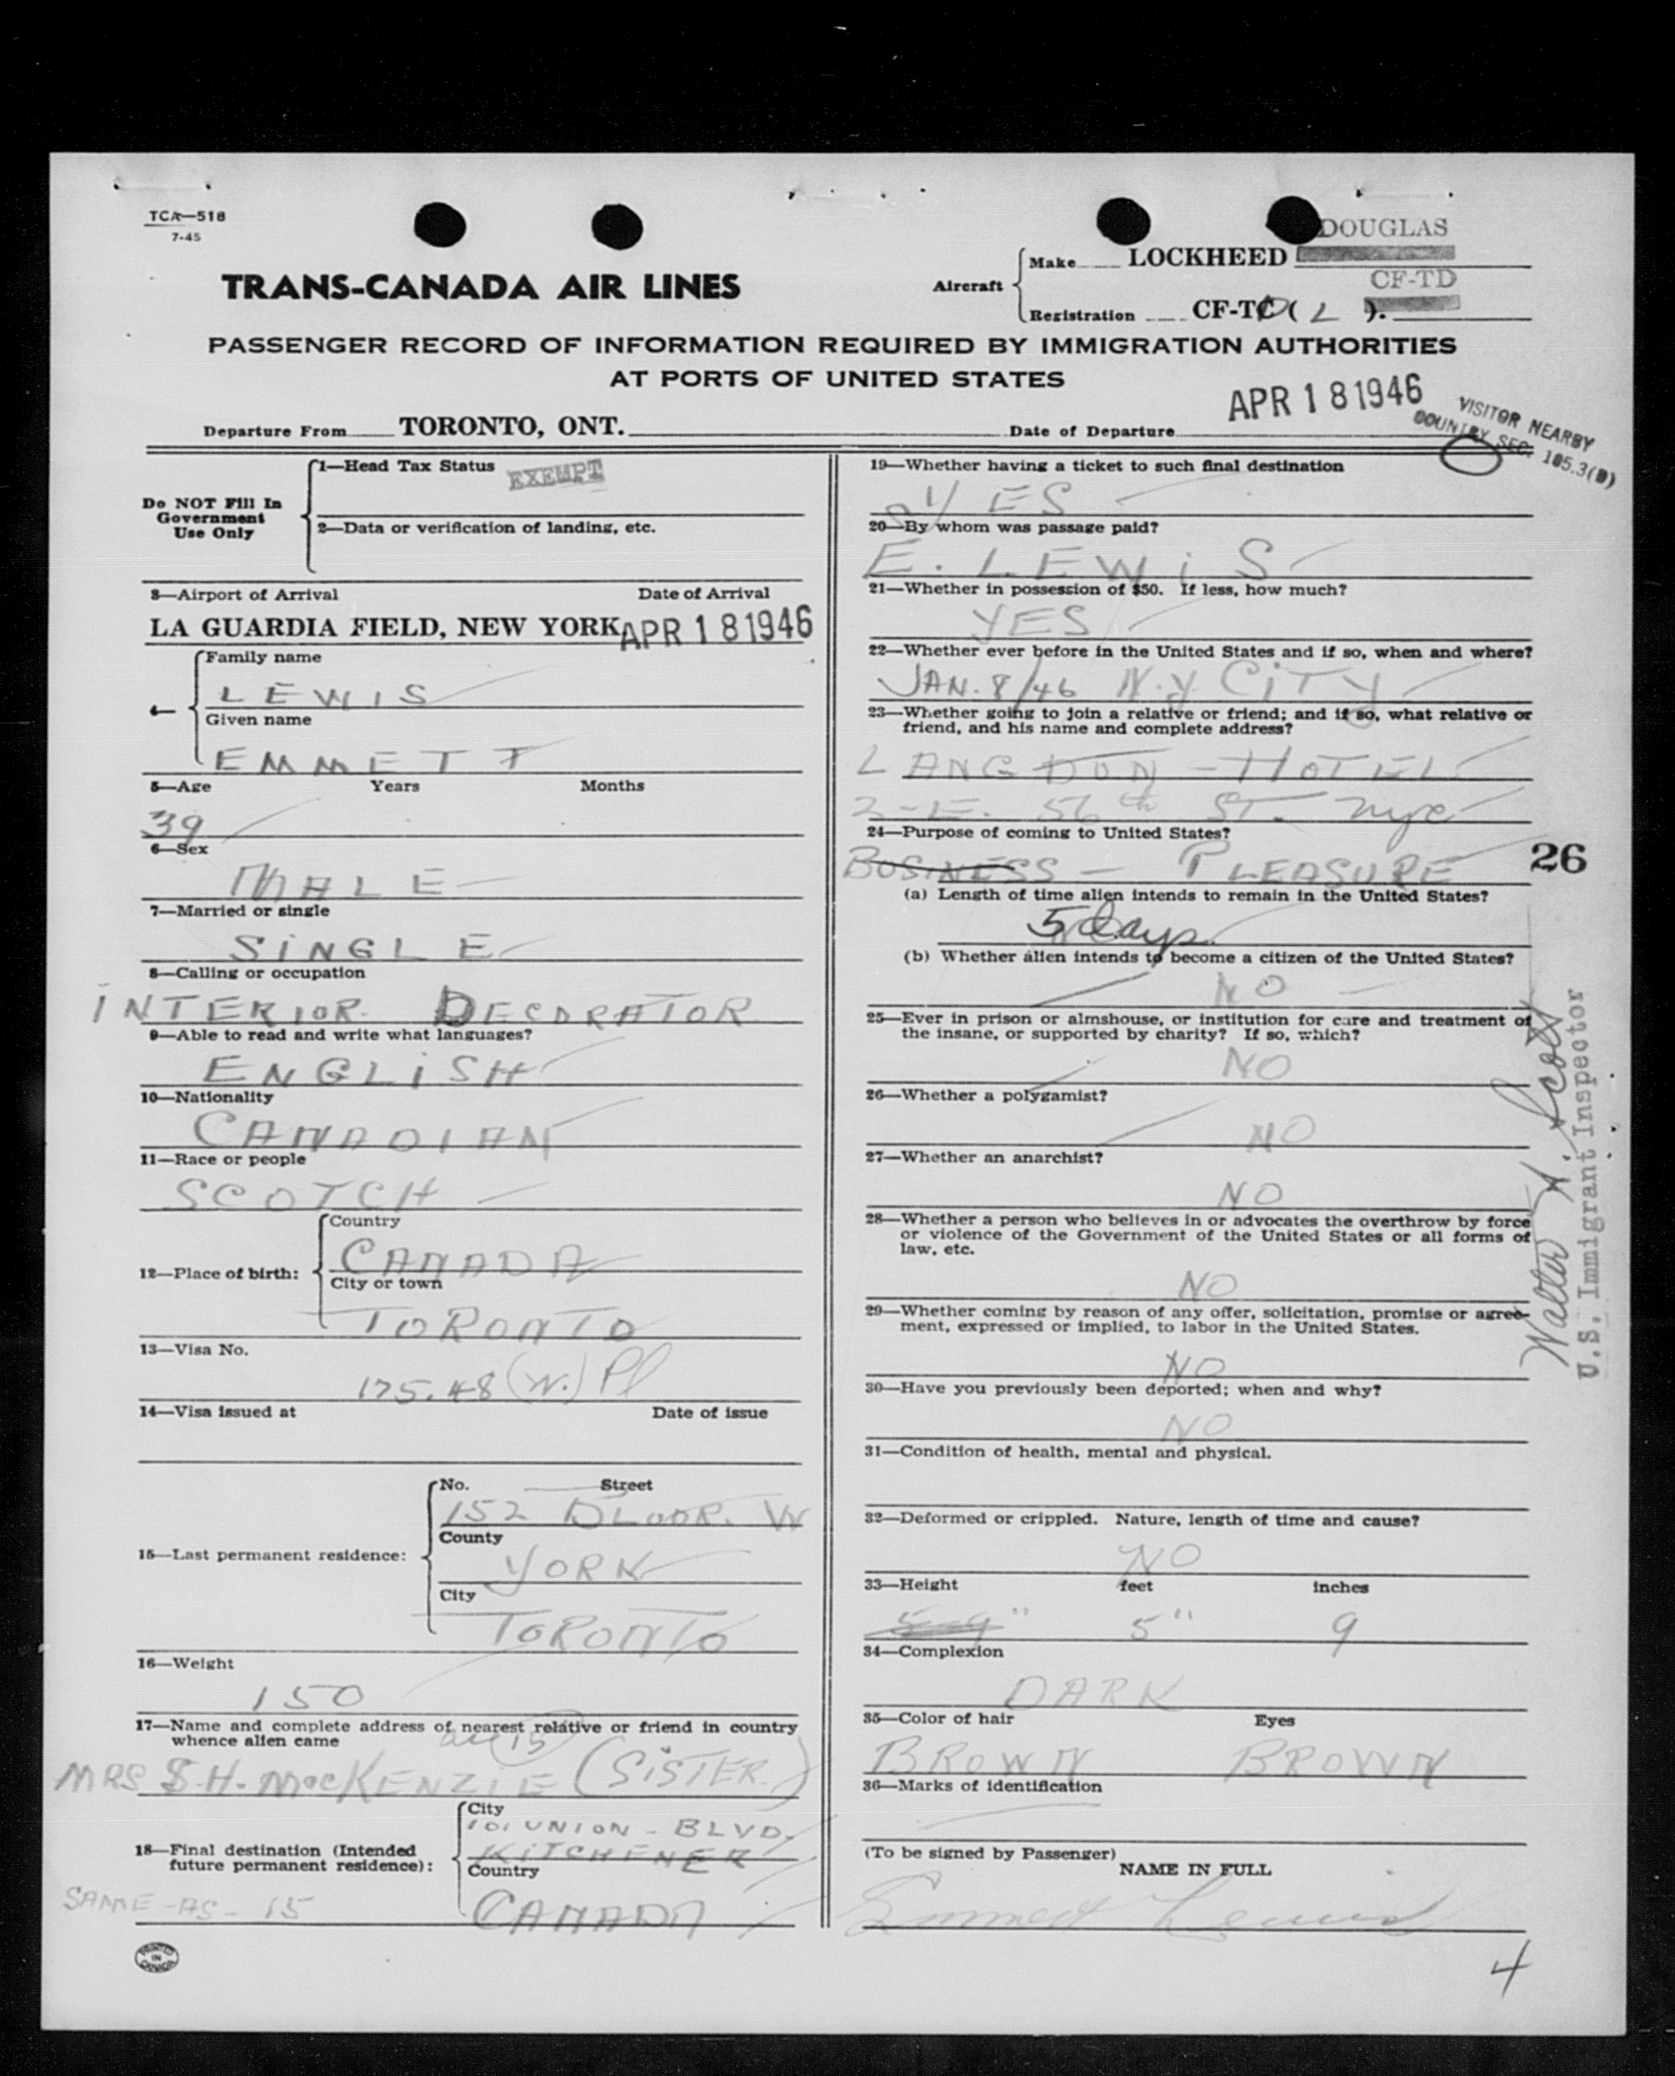 TCA—518
7-45
DOUGLAS
TRANS-CANADA AIR LINES
Aircraft
Make LOCKHEED
CF-TD
Registration CF-TC ( L ).
PASSENGER RECORD OF INFORMATION REQUIRED BY IMMIGRATION AUTHORITIES
AT PORTS OF UNITED STATES
Departure From TORONTO, ONT.
Date of Departure APR 18 1946
VISITOR NEARBY
COUNTRY SEC. 105.3(B)
Do NOT Fill In
Government
Use Only
1—Head Tax Status EXEMPT
2—Data or verification of landing, etc.
3—Airport of Arrival Date of Arrival
LA GUARDIA FIELD, NEW YORK APR 18 1946
4—
Family name
LEWIS
Given name
EMMETT
5—Age Years Months
39
6—Sex
MALE
7—Married or single
SINGLE
8—Calling or occupation
INTERIOR DECORATOR
9—Able to read and write what languages?
ENGLISH
10—Nationality
CANADIAN
11—Race or people
SCOTCH
12—Place of birth:
Country
CANADA
City or town
TORONTO
13—Visa No.
175.48 (W.) Pl
14—Visa issued at Date of issue
15—Last permanent residence:
No. Street
152 BLOOR. W
County
YORK
City
TORONTO
16—Weight
150
17—Name and complete address of nearest relative or friend in country
whence alien came
15
MRS S.H. MacKENZIE (SISTER)
18—Final destination (Intended
future permanent residence):
City
101 UNION - BLVD.
KITCHENER
Country
CANADA
SAME - AS - 15
PRINTED
IN
CANADA
19—Whether having a ticket to such final destination
YES
20—By whom was passage paid?
E. LEWIS
21—Whether in possession of $50. If less, how much?
YES
22—Whether ever before in the United States and if so, when and where?
JAN. 8/46 N.Y. CITY
23—Whether going to join a relative or friend; and if so, what relative or
friend, and his name and complete address?
LANGDON - HOTEL
2 - E. 56th ST. nyc
24—Purpose of coming to United States?
BUSINESS - PLEASURE
(a) Length of time alien intends to remain in the United States?
5 days
(b) Whether alien intends to become a citizen of the United States?
NO
25—Ever in prison or almshouse, or institution for care and treatment of
the insane, or supported by charity? If so, which?
NO
26—Whether a polygamist?
NO
27—Whether an anarchist?
NO
28—Whether a person who believes in or advocates the overthrow by force
or violence of the Government of the United States or all forms of
law, etc.
NO
29—Whether coming by reason of any offer, solicitation, promise or agree-
ment, expressed or implied, to labor in the United States.
NO
30—Have you previously been deported; when and why?
NO
31—Condition of health, mental and physical.
32—Deformed or crippled. Nature, length of time and cause?
NO
33—Height feet inches
5-9" 5" 9
34—Complexion
DARK
35—Color of hair Eyes
BROWN BROWN
36—Marks of identification
(To be signed by Passenger)
NAME IN FULL
Emmett Lewis
26
Walter H. Scott
U.S. Immigrant Inspector
4